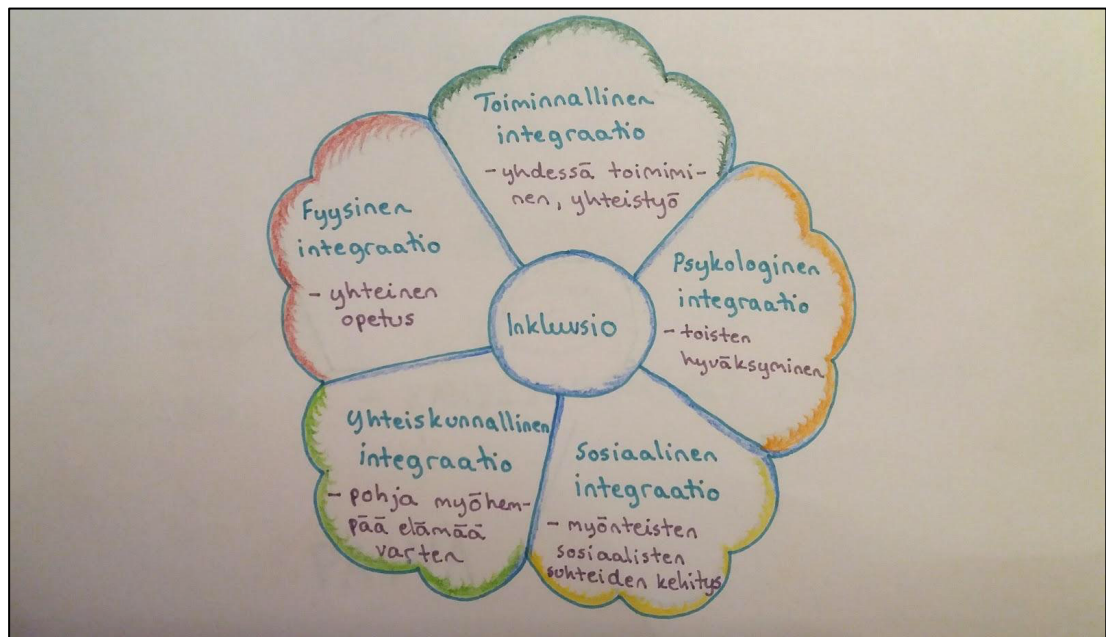 Toiminnallinen
integraatio
- yhdessä toimimi-
nen, yhteistyö
Psykologinen
integraatio
- toisten
hyväksyminen
Sosiaalinen
integraatio
- myönteisten
sosiaalisten
suhteiden kehitys
Yhteiskunnallinen
integraatio
- pohja myöhem-
pää elämää
varten
Fyysinen
integraatio
- yhteinen
opetus
Inkluusio